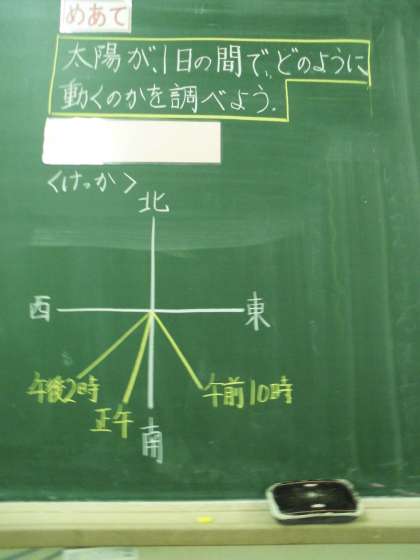 めあて
太陽が、1日の間で、どのように
動くのかを調べよう.
<けっか>
北
西
東
午後2時
正午
午前10時
南